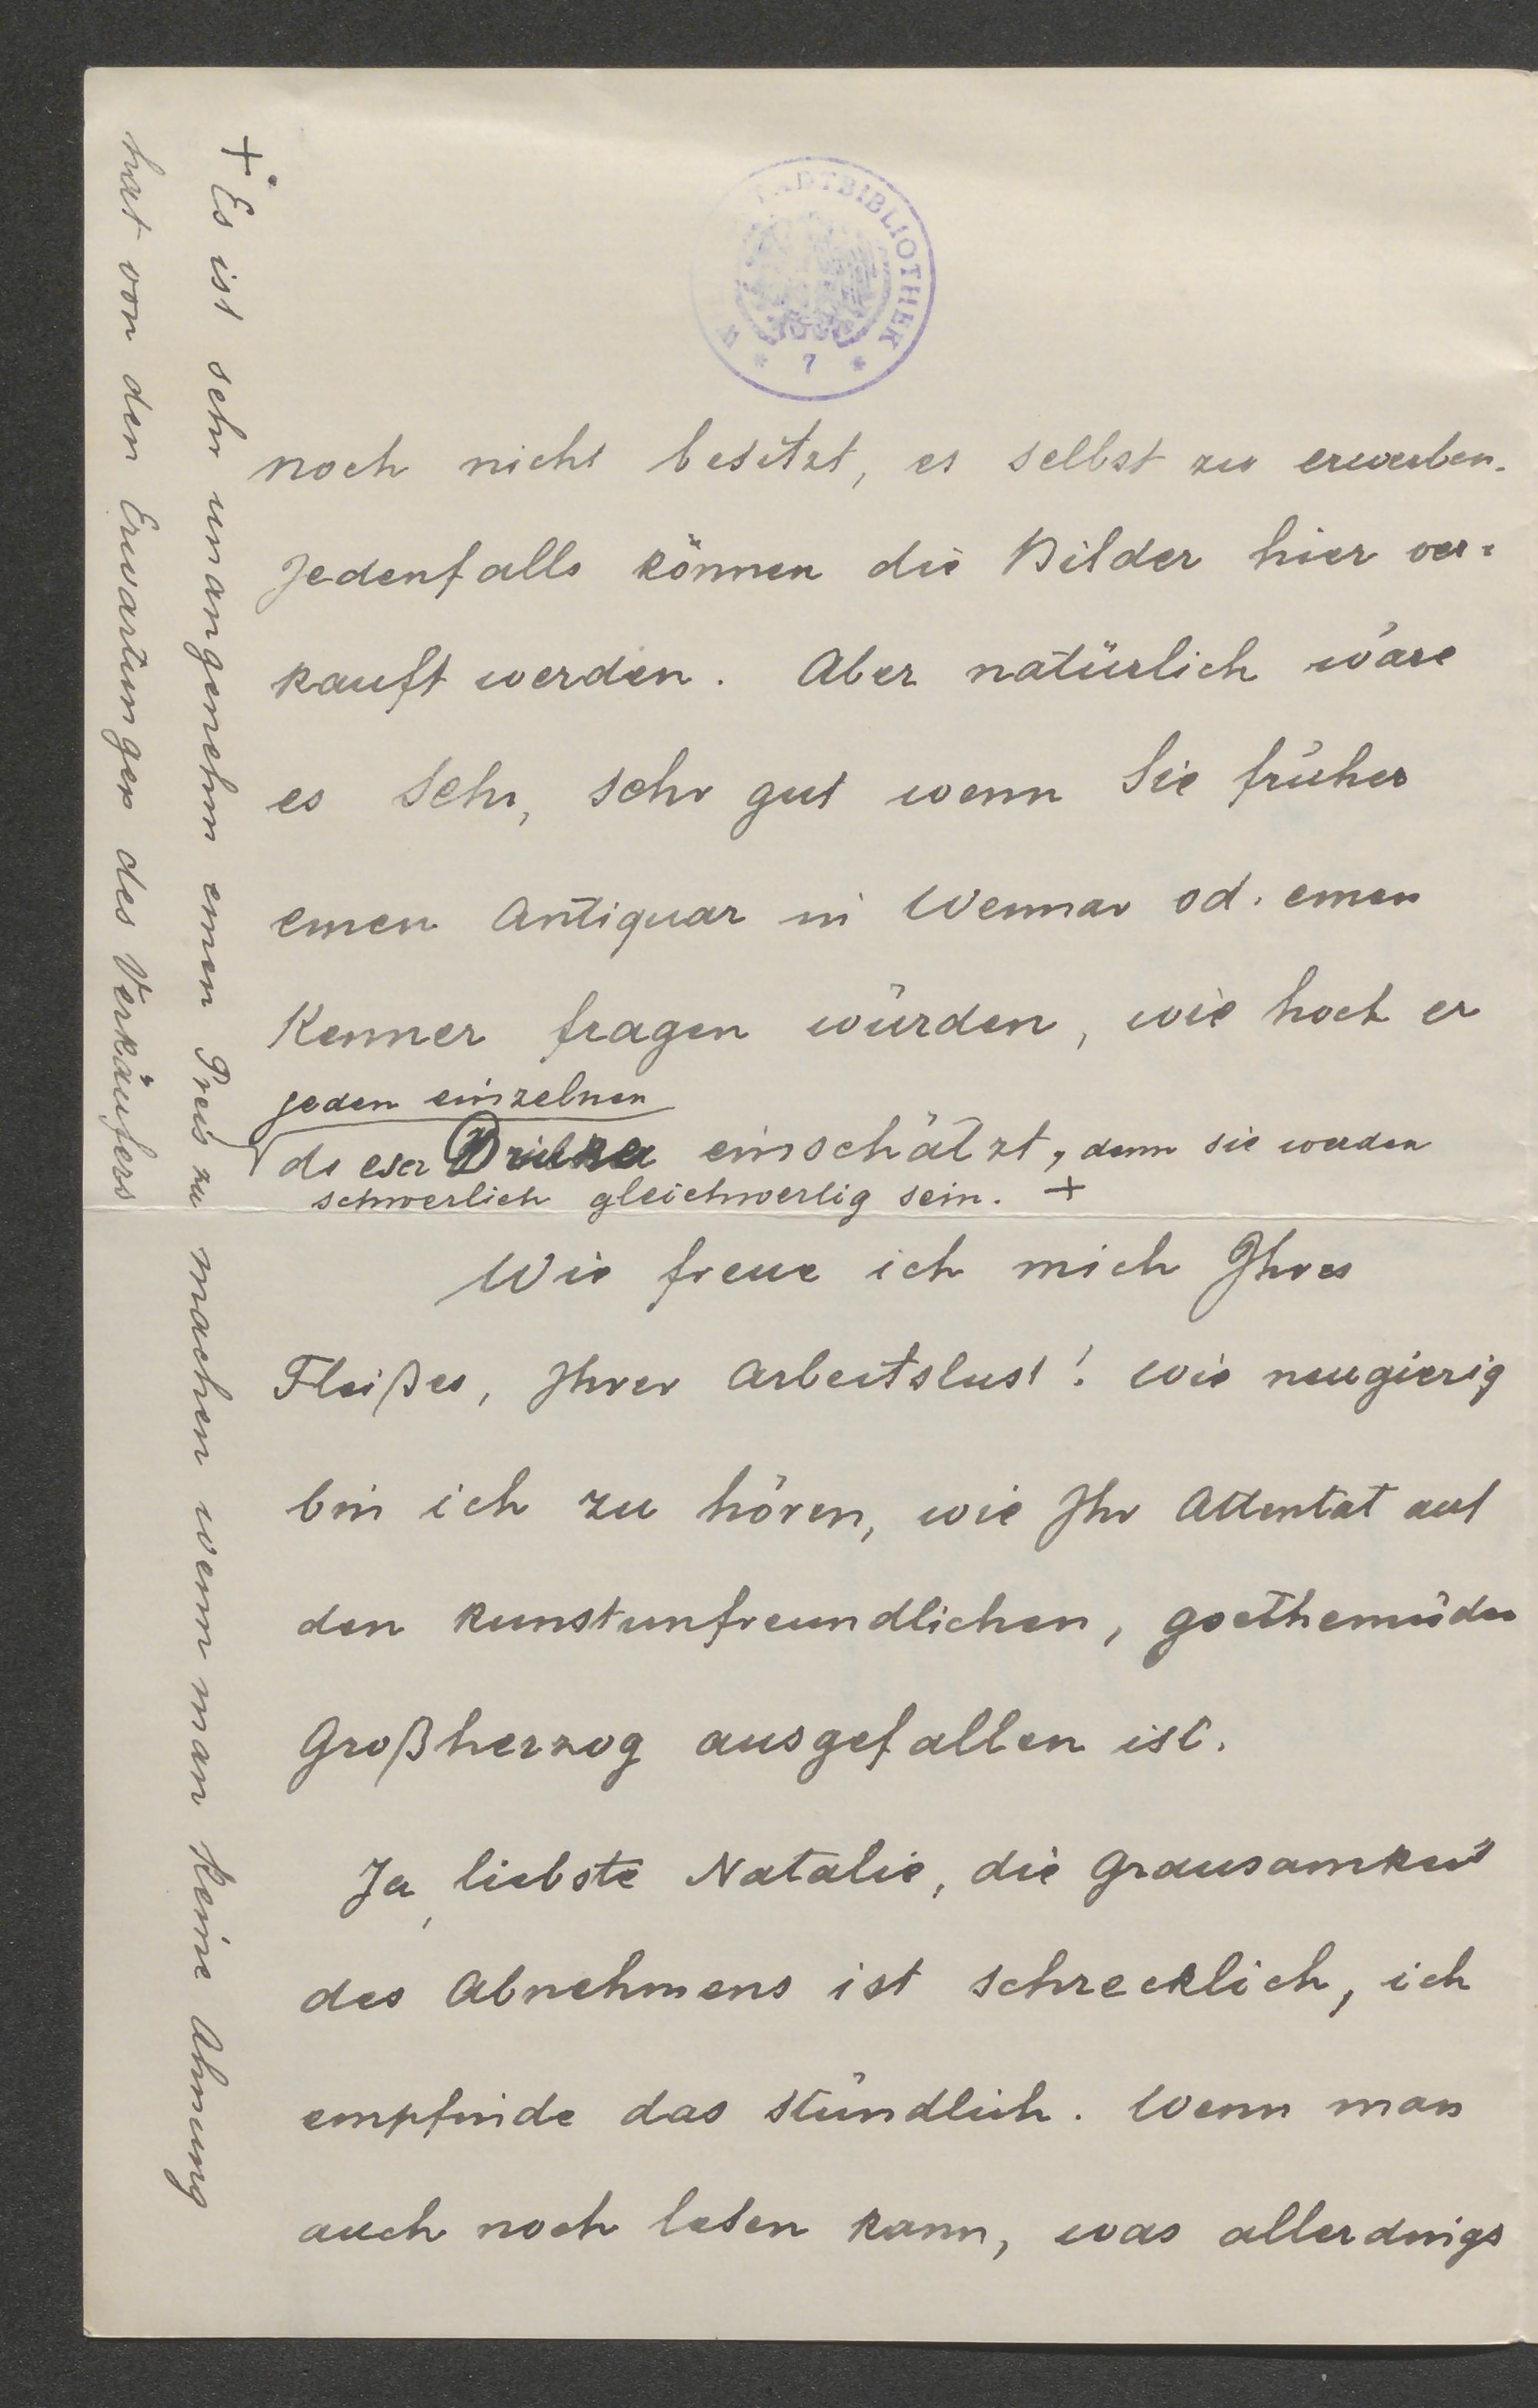 STADTBIBLIOTHEK
* 7 *
noch nicht besitzt, es selbst zu erwerben.
Jedenfalls können die Bilder hier ver=
kauft werden. Aber natürlich wäre
es sehr, sehr gut wenn Sie früher
einen Antiquar in Weimar od. einen
Kenner fragen würden, wie hoch er
jeden einzelnen
dieser Drucke einschätzt, denn sie werden
schwerlich gleichwertig sein. +
Wie freue ich mich Ihres
Fleißes, Ihrer Arbeitslust! Wie neugierig
bin ich zu hören, wie Ihr Attentat auf
den kunstunfreundlichen, goethemüden
Großherzog ausgefallen ist.
Ja, liebste Natalie, die Grausamkeit
des Abnehmens ist schrecklich, ich
empfinde das stündlich. Wenn man
auch noch lesen kann, was allerdings
+ Es ist sehr unangenehm einen Preis zu machen wenn man keine Ahnung
hat von den Erwartungen des Verkäufers